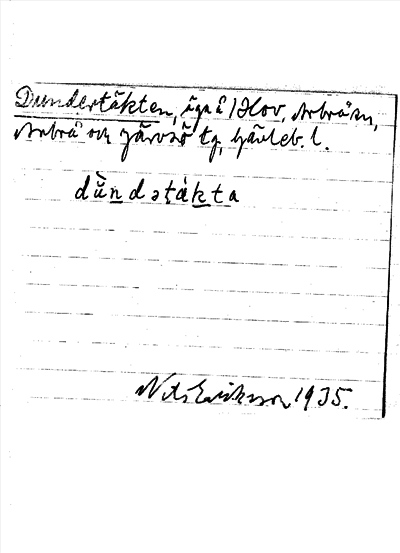 Dundertäkten, äga å 1 Hov, Arbrå sn,
Arbrå och Järvsö tg, Gävleb. l.
dùndətàkta
Nils Eriksson 1935.